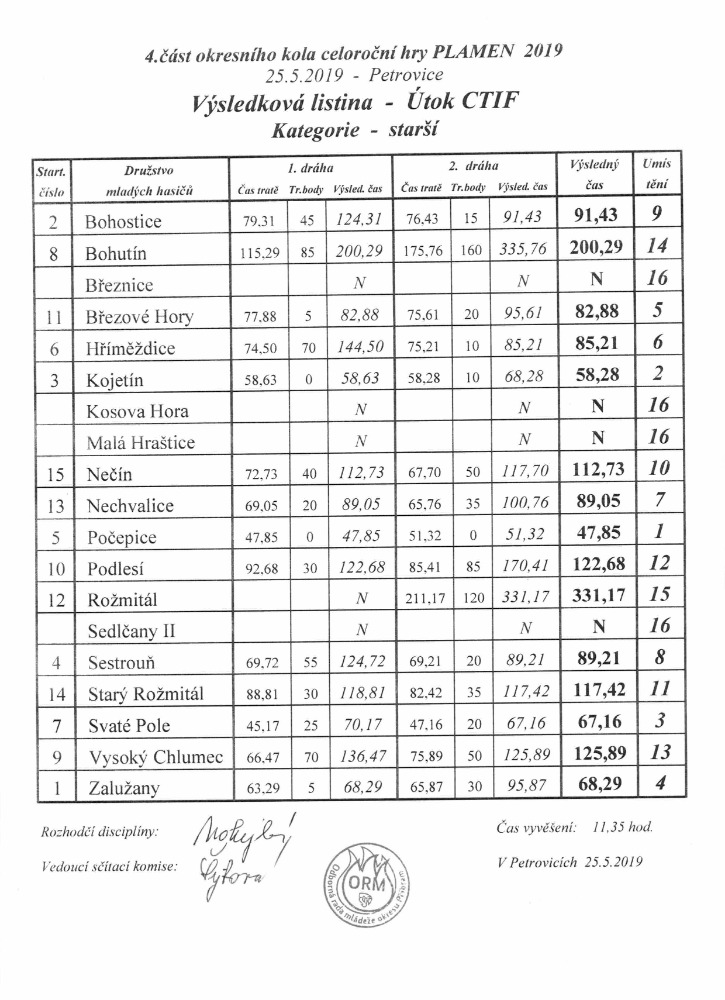 4.část okresního kola celoroční hry PLAMEN 2019
25.5.2019 - Petrovice
Výsledková listina - Útok CTIF
Kategorie - starší
Start. číslo Družstvo mladých hasičů 1. dráha 2. dráha Výsledný čas Umis tění
Čas tratě Tr.body Výsled. čas Čas tratě Tr.body Výsled. čas
2 Bohostice 79,31 45 124,31 76,43 15 91,43 91,43 9
8 Bohutín 115,29 85 200,29 175,76 160 335,76 200,29 14
Březnice N N N 16
11 Březové Hory 77,88 5 82,88 75,61 20 95,61 82,88 5
6 Hříměždice 74,50 70 144,50 75,21 10 85,21 85,21 6
3 Kojetín 58,63 0 58,63 58,28 10 68,28 58,28 2
Kosova Hora N N N 16
Malá Hraštice N N N 16
15 Nečín 72,73 40 112,73 67,70 50 117,70 112,73 10
13 Nechvalice 69,05 20 89,05 65,76 35 100,76 89,05 7
5 Počepice 47,85 0 47,85 51,32 0 51,32 47,85 1
10 Podlesí 92,68 30 122,68 85,41 85 170,41 122,68 12
12 Rožmitál N 211,17 120 331,17 331,17 15
Sedlčany II N N N 16
4 Sestrouň 69,72 55 124,72 69,21 20 89,21 89,21 8
14 Starý Rožmitál 88,81 30 118,81 82,42 35 117,42 117,42 11
7 Svaté Pole 45,17 25 70,17 47,16 20 67,16 67,16 3
9 Vysoký Chlumec 66,47 70 136,47 75,89 50 125,89 125,89 13
1 Zalužany 63,29 5 68,29 65,87 30 95,87 68,29 4
Rozhodčí disciplíny: Čas vyvěšení: 11,35 hod.
Vedoucí sčítací komise: V Petrovicích 25.5.2019
Odborná rada mládeže okresu Příbram
ORM